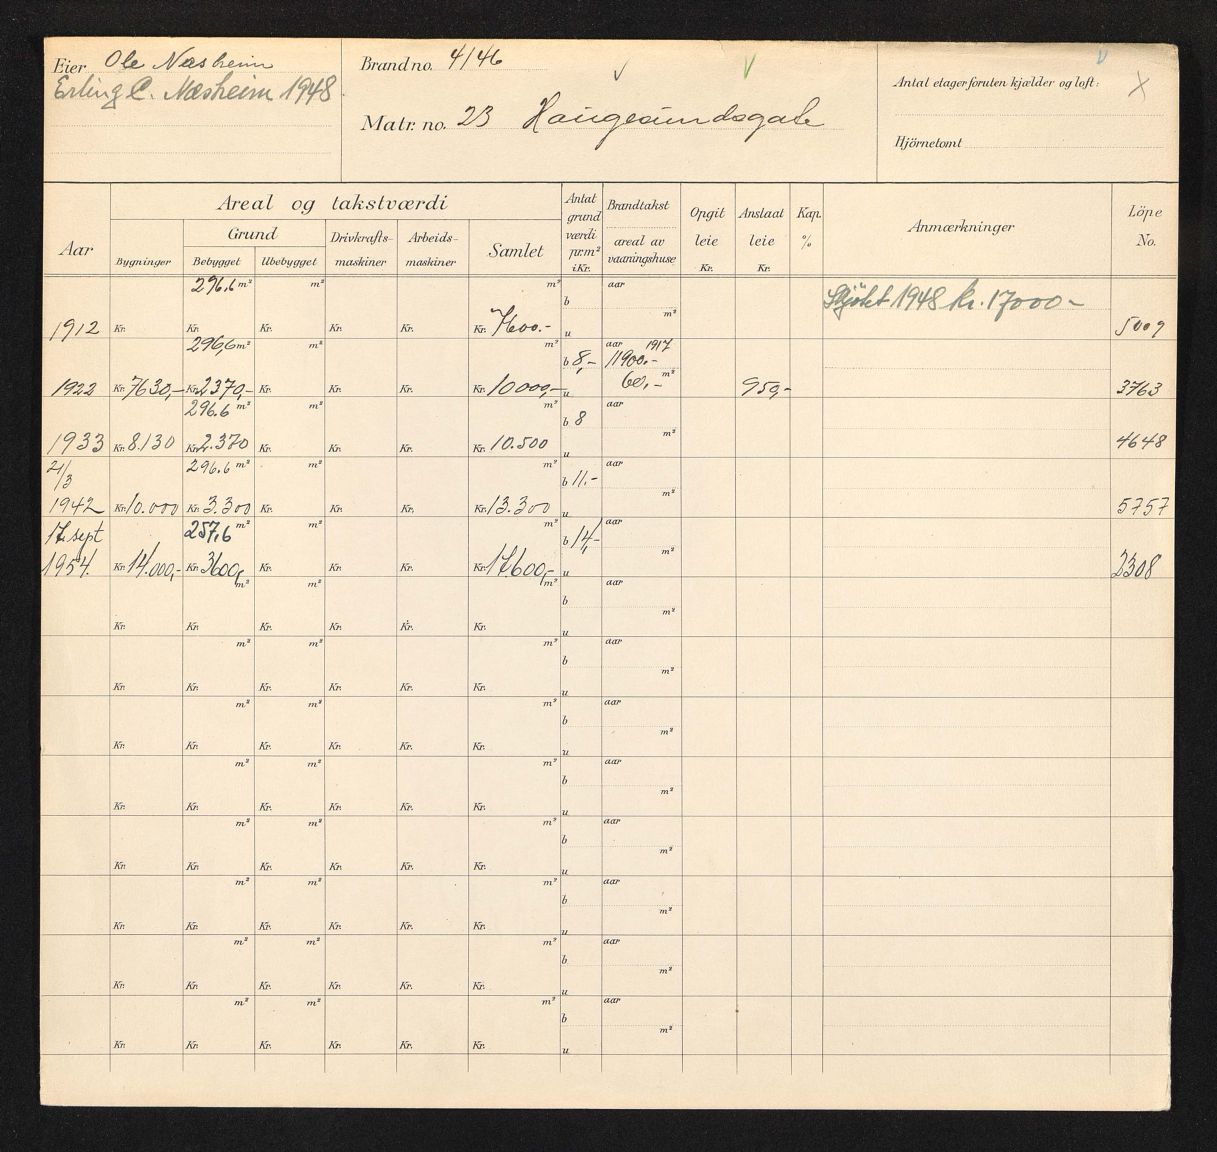 Eier Ole Næsheim
Erling C. Næsheim 1948.
Brand no. 4146
Matr. no. 23 Haugesundsgate
Antal etager foruten kjælder og loft:
Hjörnetomt
Aar
Areal og takstværdi
Grund
Bygninger Bebygget Ubebygget
Drivkrafts-maskiner
Arbeids-maskiner
Samlet
Antat grund værdi pr. m² i Kr.
Brandtakst
areal av vaaningshuse
Opgit leie Kr.
Anslaat leie Kr.
Kap. %
Anmærkninger
Löpe No.
296.6 m² m² m² b aar Skjötet 1948 kr. 17000-
1912 Kr. Kr. Kr. Kr. Kr. Kr. 7600.- u m² 5009
296,6 m² m² m² b 8,- aar 1917 11900.-
1922 Kr. 7630,- Kr. 2370,- Kr. Kr. Kr. Kr. 10000,- u 60,- m² 959,- 3763
296.6 m² m² m² b 8 aar
1933 Kr. 8.130 Kr. 2.370 Kr. Kr. Kr. Kr. 10.500 u m² 4648
21/3 296.6 m² m² m² b 11.- aar
1942 Kr. 10.000 Kr. 3.300 Kr. Kr. Kr. Kr. 13.300 u m² 5757
17. sept 257,6 m² m² m² b 14,- aar
1954. Kr. 14.000,- Kr. 3600,- Kr. Kr. Kr. Kr. 17600,- u m² 2308
m² m² m² b aar
Kr. Kr. Kr. Kr. Kr. Kr. u m²
m² m² m² b aar
Kr. Kr. Kr. Kr. Kr. Kr. u m²
m² m² m² b aar
Kr. Kr. Kr. Kr. Kr. Kr. u m²
m² m² m² b aar
Kr. Kr. Kr. Kr. Kr. Kr. u m²
m² m² m² b aar
Kr. Kr. Kr. Kr. Kr. Kr. u m²
m² m² m² b aar
Kr. Kr. Kr. Kr. Kr. Kr. u m²
m² m² m² b aar
Kr. Kr. Kr. Kr. Kr. Kr. u m²
m² m² m² b aar
Kr. Kr. Kr. Kr. Kr. Kr. u m²